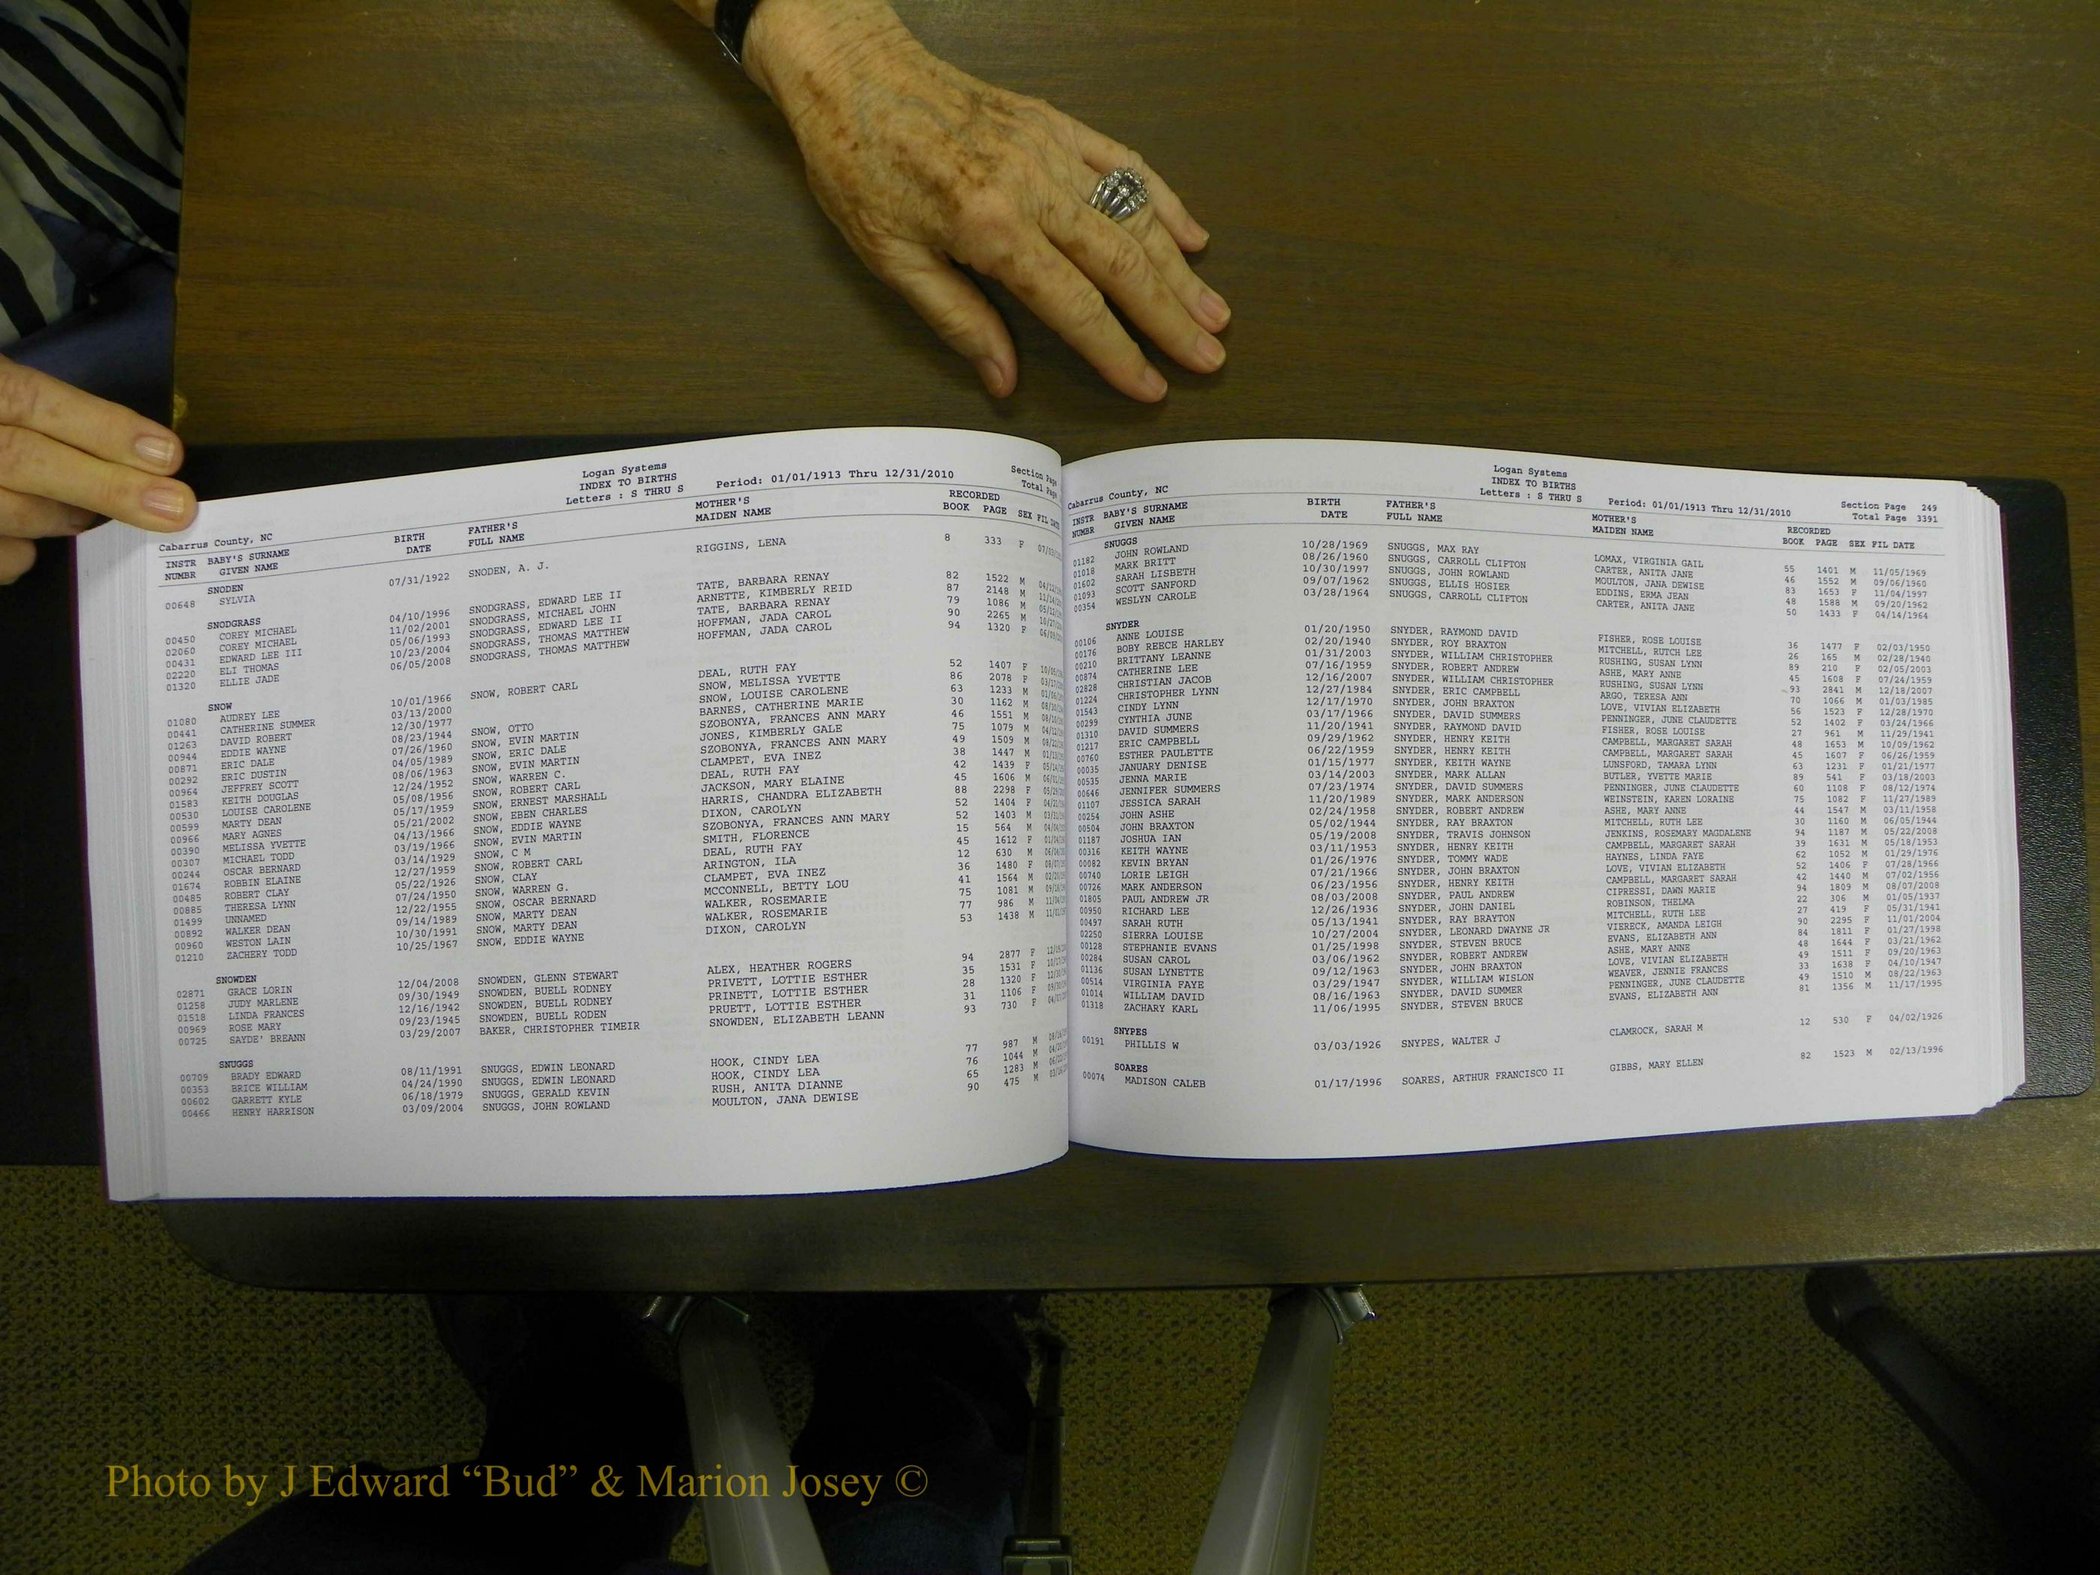 Logan Systems
INDEX TO BIRTHS
Cabarrus County, NC Letters : S THRU S Period: 01/01/1913 Thru 12/31/2010 Section Page
Total Page
INSTR BABY'S SURNAME BIRTH FATHER'S MOTHER'S RECORDED
NUMBR GIVEN NAME DATE FULL NAME MAIDEN NAME BOOK PAGE SEX FIL DATE
SNODEN
00648 SYLVIA 07/31/1922 SNODEN, A. J. RIGGINS, LENA 8 333 F
SNODGRASS
00450 COREY MICHAEL 04/10/1996 SNODGRASS, EDWARD LEE II TATE, BARBARA RENAY 82 1522 M
02060 COREY MICHAEL 11/02/2001 SNODGRASS, MICHAEL JOHN ARNETTE, KIMBERLY REID 87 2148 M
00431 EDWARD LEE III 05/06/1993 SNODGRASS, EDWARD LEE II TATE, BARBARA RENAY 79 1086 M
02220 ELI THOMAS 10/23/2004 SNODGRASS, THOMAS MATTHEW HOFFMAN, JADA CAROL 90 2265 M
01320 ELLIE JADE 06/05/2008 SNODGRASS, THOMAS MATTHEW HOFFMAN, JADA CAROL 94 1320 F
SNOW
01080 AUDREY LEE 10/01/1966 SNOW, ROBERT CARL DEAL, RUTH FAY 52 1407 F
00441 CATHERINE SUMMER 03/13/2000 SNOW, MELISSA YVETTE 86 2078 F
01263 DAVID ROBERT 12/30/1977 SNOW, LOUISE CAROLENE 63 1233 M
00944 EDDIE WAYNE 08/23/1944 SNOW, OTTO BARNES, CATHERINE MARIE 30 1162 M
00871 ERIC DALE 07/26/1960 SNOW, EVIN MARTIN SZOBONYA, FRANCES ANN MARY 46 1551 M
00292 ERIC DUSTIN 04/05/1989 SNOW, ERIC DALE JONES, KIMBERLY GALE 75 1079 M
00964 JEFFREY SCOTT 08/06/1963 SNOW, EVIN MARTIN SZOBONYA, FRANCES ANN MARY 49 1509 M
01583 KEITH DOUGLAS 12/24/1952 SNOW, WARREN C. CLAMPET, EVA INEZ 38 1447 M
00530 LOUISE CAROLENE 05/08/1956 SNOW, ROBERT CARL DEAL, RUTH FAY 42 1439 F
00599 MARTY DEAN 05/17/1959 SNOW, ERNEST MARSHALL JACKSON, MARY ELAINE 45 1606 M
00966 MARY AGNES 05/21/2002 SNOW, EBEN CHARLES HARRIS, CHANDRA ELIZABETH 88 2298 F
00390 MELISSA YVETTE 04/13/1966 SNOW, EDDIE WAYNE DIXON, CAROLYN 52 1404 F
00307 MICHAEL TODD 03/19/1966 SNOW, EVIN MARTIN SZOBONYA, FRANCES ANN MARY 52 1403 M
00244 OSCAR BERNARD 03/14/1929 SNOW, C M SMITH, FLORENCE 15 564 M
01674 ROBBIN ELAINE 12/27/1959 SNOW, ROBERT CARL DEAL, RUTH FAY 45 1612 F
00485 ROBERT CLAY 05/22/1926 SNOW, CLAY ARINGTON, ILA 12 630 M
00885 THERESA LYNN 07/24/1950 SNOW, WARREN G. CLAMPET, EVA INEZ 36 1480 F
01499 UNNAMED 12/22/1955 SNOW, OSCAR BERNARD MCCONNELL, BETTY LOU 41 1564 M
00892 WALKER DEAN 09/14/1989 SNOW, MARTY DEAN WALKER, ROSEMARIE 75 1081 M
00960 WESTON LAIN 10/30/1991 SNOW, MARTY DEAN WALKER, ROSEMARIE 77 986 M
01210 ZACHERY TODD 10/25/1967 SNOW, EDDIE WAYNE DIXON, CAROLYN 53 1438 M
SNOWDEN
02871 GRACE LORIN 12/04/2008 SNOWDEN, GLENN STEWART ALEX, HEATHER ROGERS 94 2877 F
01258 JUDY MARLENE 09/30/1949 SNOWDEN, BUELL RODNEY PRIVETT, LOTTIE ESTHER 35 1531 F
01518 LINDA FRANCES 12/16/1942 SNOWDEN, BUELL RODNEY PRINETT, LOTTIE ESTHER 28 1320 F
00969 ROSE MARY 09/23/1945 SNOWDEN, BUELL RODEN PRUETT, LOTTIE ESTHER 31 1106 F
00725 SAYDE' BREANN 03/29/2007 BAKER, CHRISTOPHER TIMEIR SNOWDEN, ELIZABETH LEANN 93 730 F
SNUGGS
00709 BRADY EDWARD 08/11/1991 SNUGGS, EDWIN LEONARD HOOK, CINDY LEA 77 987 M
00353 BRICE WILLIAM 04/24/1990 SNUGGS, EDWIN LEONARD HOOK, CINDY LEA 76 1044 M
00602 GARRETT KYLE 06/18/1979 SNUGGS, GERALD KEVIN RUSH, ANITA DIANNE 65 1283 M
00466 HENRY HARRISON 03/09/2004 SNUGGS, JOHN ROWLAND MOULTON, JANA DEWISE 90 475 M
Logan Systems
INDEX TO BIRTHS
Cabarrus County, NC Letters : S THRU S Period: 01/01/1913 Thru 12/31/2010 Section Page 249
Total Page 3391
INSTR BABY'S SURNAME BIRTH FATHER'S MOTHER'S RECORDED
NUMBR GIVEN NAME DATE FULL NAME MAIDEN NAME BOOK PAGE SEX FIL DATE
SNUGGS
01182 JOHN ROWLAND 10/28/1969 SNUGGS, MAX RAY LOMAX, VIRGINIA GAIL 55 1401 M 11/05/1969
01018 MARK BRITT 08/26/1960 SNUGGS, CARROLL CLIFTON CARTER, ANITA JANE 46 1552 M 09/06/1960
01602 SARAH LISBETH 10/30/1997 SNUGGS, JOHN ROWLAND MOULTON, JANA DEWISE 83 1653 F 11/04/1997
01093 SCOTT SANFORD 09/07/1962 SNUGGS, ELLIS HOSIER EDDINS, ERMA JEAN 48 1588 M 09/20/1962
00354 WESLYN CAROLE 03/28/1964 SNUGGS, CARROLL CLIFTON CARTER, ANITA JANE 50 1433 F 04/14/1964
SNYDER
00106 ANNE LOUISE 01/20/1950 SNYDER, RAYMOND DAVID FISHER, ROSE LOUISE 36 1477 F 02/03/1950
00176 BOBY REECE HARLEY 02/20/1940 SNYDER, ROY BRAXTON MITCHELL, RUTCH LEE 26 165 M 02/28/1940
00210 BRITTANY LEANNE 01/31/2003 SNYDER, WILLIAM CHRISTOPHER RUSHING, SUSAN LYNN 89 210 F 02/05/2003
00874 CATHERINE LEE 07/16/1959 SNYDER, ROBERT ANDREW ASHE, MARY ANNE 45 1608 F 07/24/1959
02828 CHRISTIAN JACOB 12/16/2007 SNYDER, WILLIAM CHRISTOPHER RUSHING, SUSAN LYNN 93 2841 M 12/18/2007
01224 CHRISTOPHER LYNN 12/27/1984 SNYDER, ERIC CAMPBELL ARGO, TERESA ANN 70 1066 M 01/03/1985
01543 CINDY LYNN 12/17/1970 SNYDER, JOHN BRAXTON LOVE, VIVIAN ELIZABETH 56 1523 F 12/28/1970
00299 CYNTHIA JUNE 03/17/1966 SNYDER, DAVID SUMMERS PENNINGER, JUNE CLAUDETTE 52 1402 F 03/24/1966
01310 DAVID SUMMERS 11/20/1941 SNYDER, RAYMOND DAVID FISHER, ROSE LOUISE 27 961 M 11/29/1941
01217 ERIC CAMPBELL 09/29/1962 SNYDER, HENRY KEITH CAMPBELL, MARGARET SARAH 48 1653 M 10/09/1962
00760 ESTHER PAULETTE 06/22/1959 SNYDER, HENRY KEITH CAMPBELL, MARGARET SARAH 45 1607 F 06/26/1959
00035 JANUARY DENISE 01/15/1977 SNYDER, KEITH WAYNE LUNSFORD, TAMARA LYNN 63 1231 F 01/21/1977
00535 JENNA MARIE 03/14/2003 SNYDER, MARK ALLAN BUTLER, YVETTE MARIE 89 541 F 03/18/2003
00646 JENNIFER SUMMERS 07/23/1974 SNYDER, DAVID SUMMERS PENNINGER, JUNE CLAUDETTE 60 1108 F 08/12/1974
01107 JESSICA SARAH 11/20/1989 SNYDER, MARK ANDERSON WEINSTEIN, KAREN LORAINE 75 1082 F 11/27/1989
00254 JOHN ASHE 02/24/1958 SNYDER, ROBERT ANDREW ASHE, MARY ANNE 44 1547 M 03/11/1958
00504 JOHN BRAXTON 05/02/1944 SNYDER, RAY BRAXTON MITCHELL, RUTH LEE 30 1160 M 06/05/1944
01187 JOSHUA IAN 05/19/2008 SNYDER, TRAVIS JOHNSON JENKINS, ROSEMARY MAGDALENE 94 1187 M 05/22/2008
00316 KEITH WAYNE 03/11/1953 SNYDER, HENRY KEITH CAMPBELL, MARGARET SARAH 39 1631 M 05/18/1953
00082 KEVIN BRYAN 01/26/1976 SNYDER, TOMMY WADE HAYNES, LINDA FAYE 62 1052 M 01/29/1976
00740 LORIE LEIGH 07/21/1966 SNYDER, JOHN BRAXTON LOVE, VIVIAN ELIZABETH 52 1406 F 07/28/1966
00726 MARK ANDERSON 06/23/1956 SNYDER, HENRY KEITH CAMPBELL, MARGARET SARAH 42 1440 M 07/02/1956
01805 PAUL ANDREW JR 08/03/2008 SNYDER, PAUL ANDREW CIPRESSI, DAWN MARIE 94 1809 M 08/07/2008
00950 RICHARD LEE 12/26/1936 SNYDER, JOHN DANIEL ROBINSON, THELMA 22 306 M 01/05/1937
00497 SARAH RUTH 05/13/1941 SNYDER, RAY BRAYTON MITCHELL, RUTH LEE 27 419 F 05/31/1941
02250 SIERRA LOUISE 10/27/2004 SNYDER, LEONARD DWAYNE JR VIERECK, AMANDA LEIGH 90 2295 F 11/01/2004
00128 STEPHANIE EVANS 01/25/1998 SNYDER, STEVEN BRUCE EVANS, ELIZABETH ANN 84 1811 F 01/27/1998
00284 SUSAN CAROL 03/06/1962 SNYDER, ROBERT ANDREW ASHE, MARY ANNE 48 1644 F 03/21/1962
01136 SUSAN LYNETTE 09/12/1963 SNYDER, JOHN BRAXTON LOVE, VIVIAN ELIZABETH 49 1511 F 09/20/1963
00514 VIRGINIA FAYE 03/29/1947 SNYDER, WILLIAM WISLON WEAVER, JENNIE FRANCES 33 1638 F 04/10/1947
01014 WILLIAM DAVID 08/16/1963 SNYDER, DAVID SUMMER PENNINGER, JUNE CLAUDETTE 49 1510 M 08/22/1963
01318 ZACHARY KARL 11/06/1995 SNYDER, STEVEN BRUCE EVANS, ELIZABETH ANN 81 1356 M 11/17/1995
SNYPES
00191 PHILLIS W 03/03/1926 SNYPES, WALTER J CLAMROCK, SARAH M 12 530 F 04/02/1926
SOARES
00074 MADISON CALEB 01/17/1996 SOARES, ARTHUR FRANCISCO II GIBBS, MARY ELLEN 82 1523 M 02/13/1996
Photo by J Edward “Bud” & Marion Josey ©